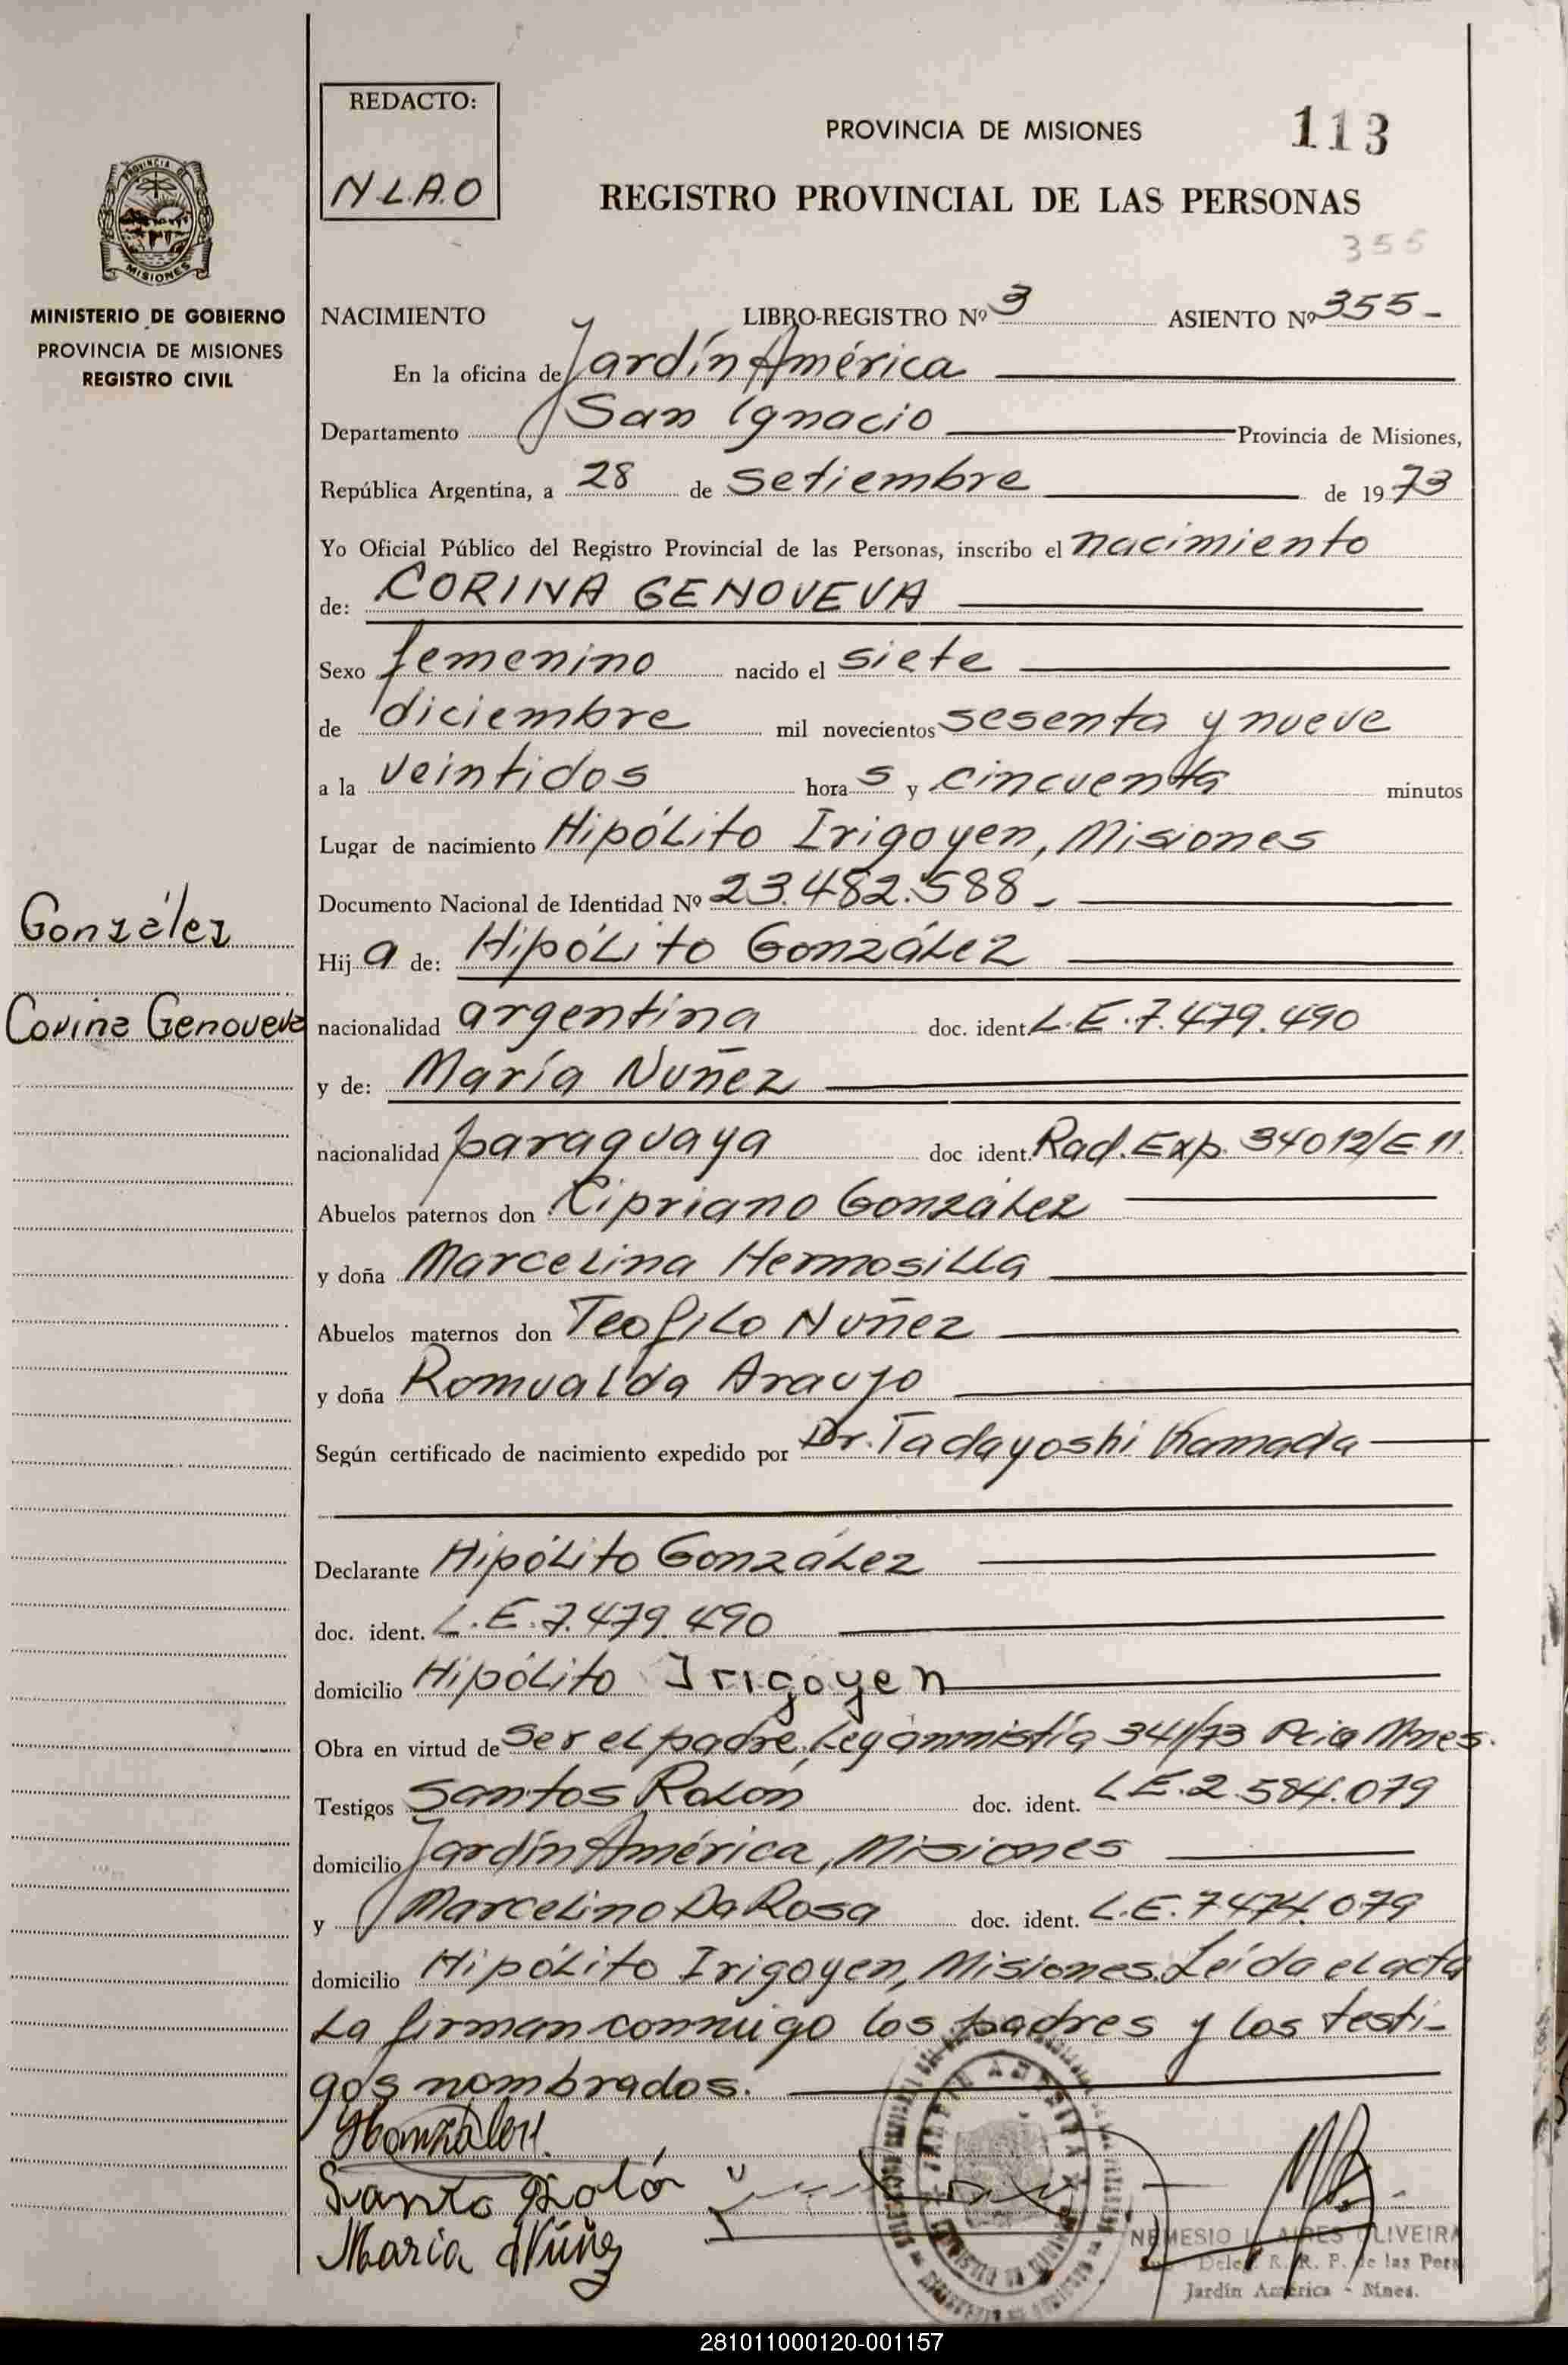 REDACTO:
N L.A.O
PROVINCIA DE MISIONES
113
REGISTRO PROVINCIAL DE LAS PERSONAS
355
PROVINCIA DE
MISIONES
MINISTERIO DE GOBIERNO
PROVINCIA DE MISIONES
REGISTRO CIVIL
NACIMIENTO LIBRO-REGISTRO Nº 3 ASIENTO Nº 355-
En la oficina de Jardín América
Departamento San Ignacio Provincia de Misiones,
República Argentina, a 28 de Setiembre de 1973
Yo Oficial Público del Registro Provincial de las Personas, inscribo el nacimiento
de: CORINA GENOVEVA
Sexo femenino nacido el siete
de diciembre mil novecientos sesenta y nueve
a la veintidos hora s y cincuenta minutos
Lugar de nacimiento Hipólito Irigoyen, Misiones
Documento Nacional de Identidad Nº 23.482.588-
González
Hij a de: Hipólito González
Corina Genoveva
nacionalidad argentina doc. ident. L.E.7.479.490
y de: María Nuñez
nacionalidad paraguaya doc ident. Rad.Exp. 34012/E.11.
Abuelos paternos don Cipriano González
y doña Marcelina Hermosilla
Abuelos maternos don Teofilo Nuñez
y doña Romualda Araujo
Según certificado de nacimiento expedido por Dr. Tadayoshi Kamada
Declarante Hipólito González
doc. ident. L.E.7.479.490
domicilio Hipólito Irigoyen
Obra en virtud de Ser el padre, Ley ammistía 341/73 Pcia Mnes.
Testigos Santos Rolón doc. ident. L.E.2.584.079
domicilio Jardín América, Misiones
y Marcelino Da Rosa doc. ident. L.E.7474.079
domicilio Hipólito Irigoyen, Misiones. Leída el acta
la firman conmigo los padres y los testi-
gos nombrados.
HGonzález
Santo Rolón
Maria Núñez
NEMESIO L. AIRES OLIVEIRA
Deleg. R. R. P. de las Pers
Jardín América - Mnes.
281011000120-001157